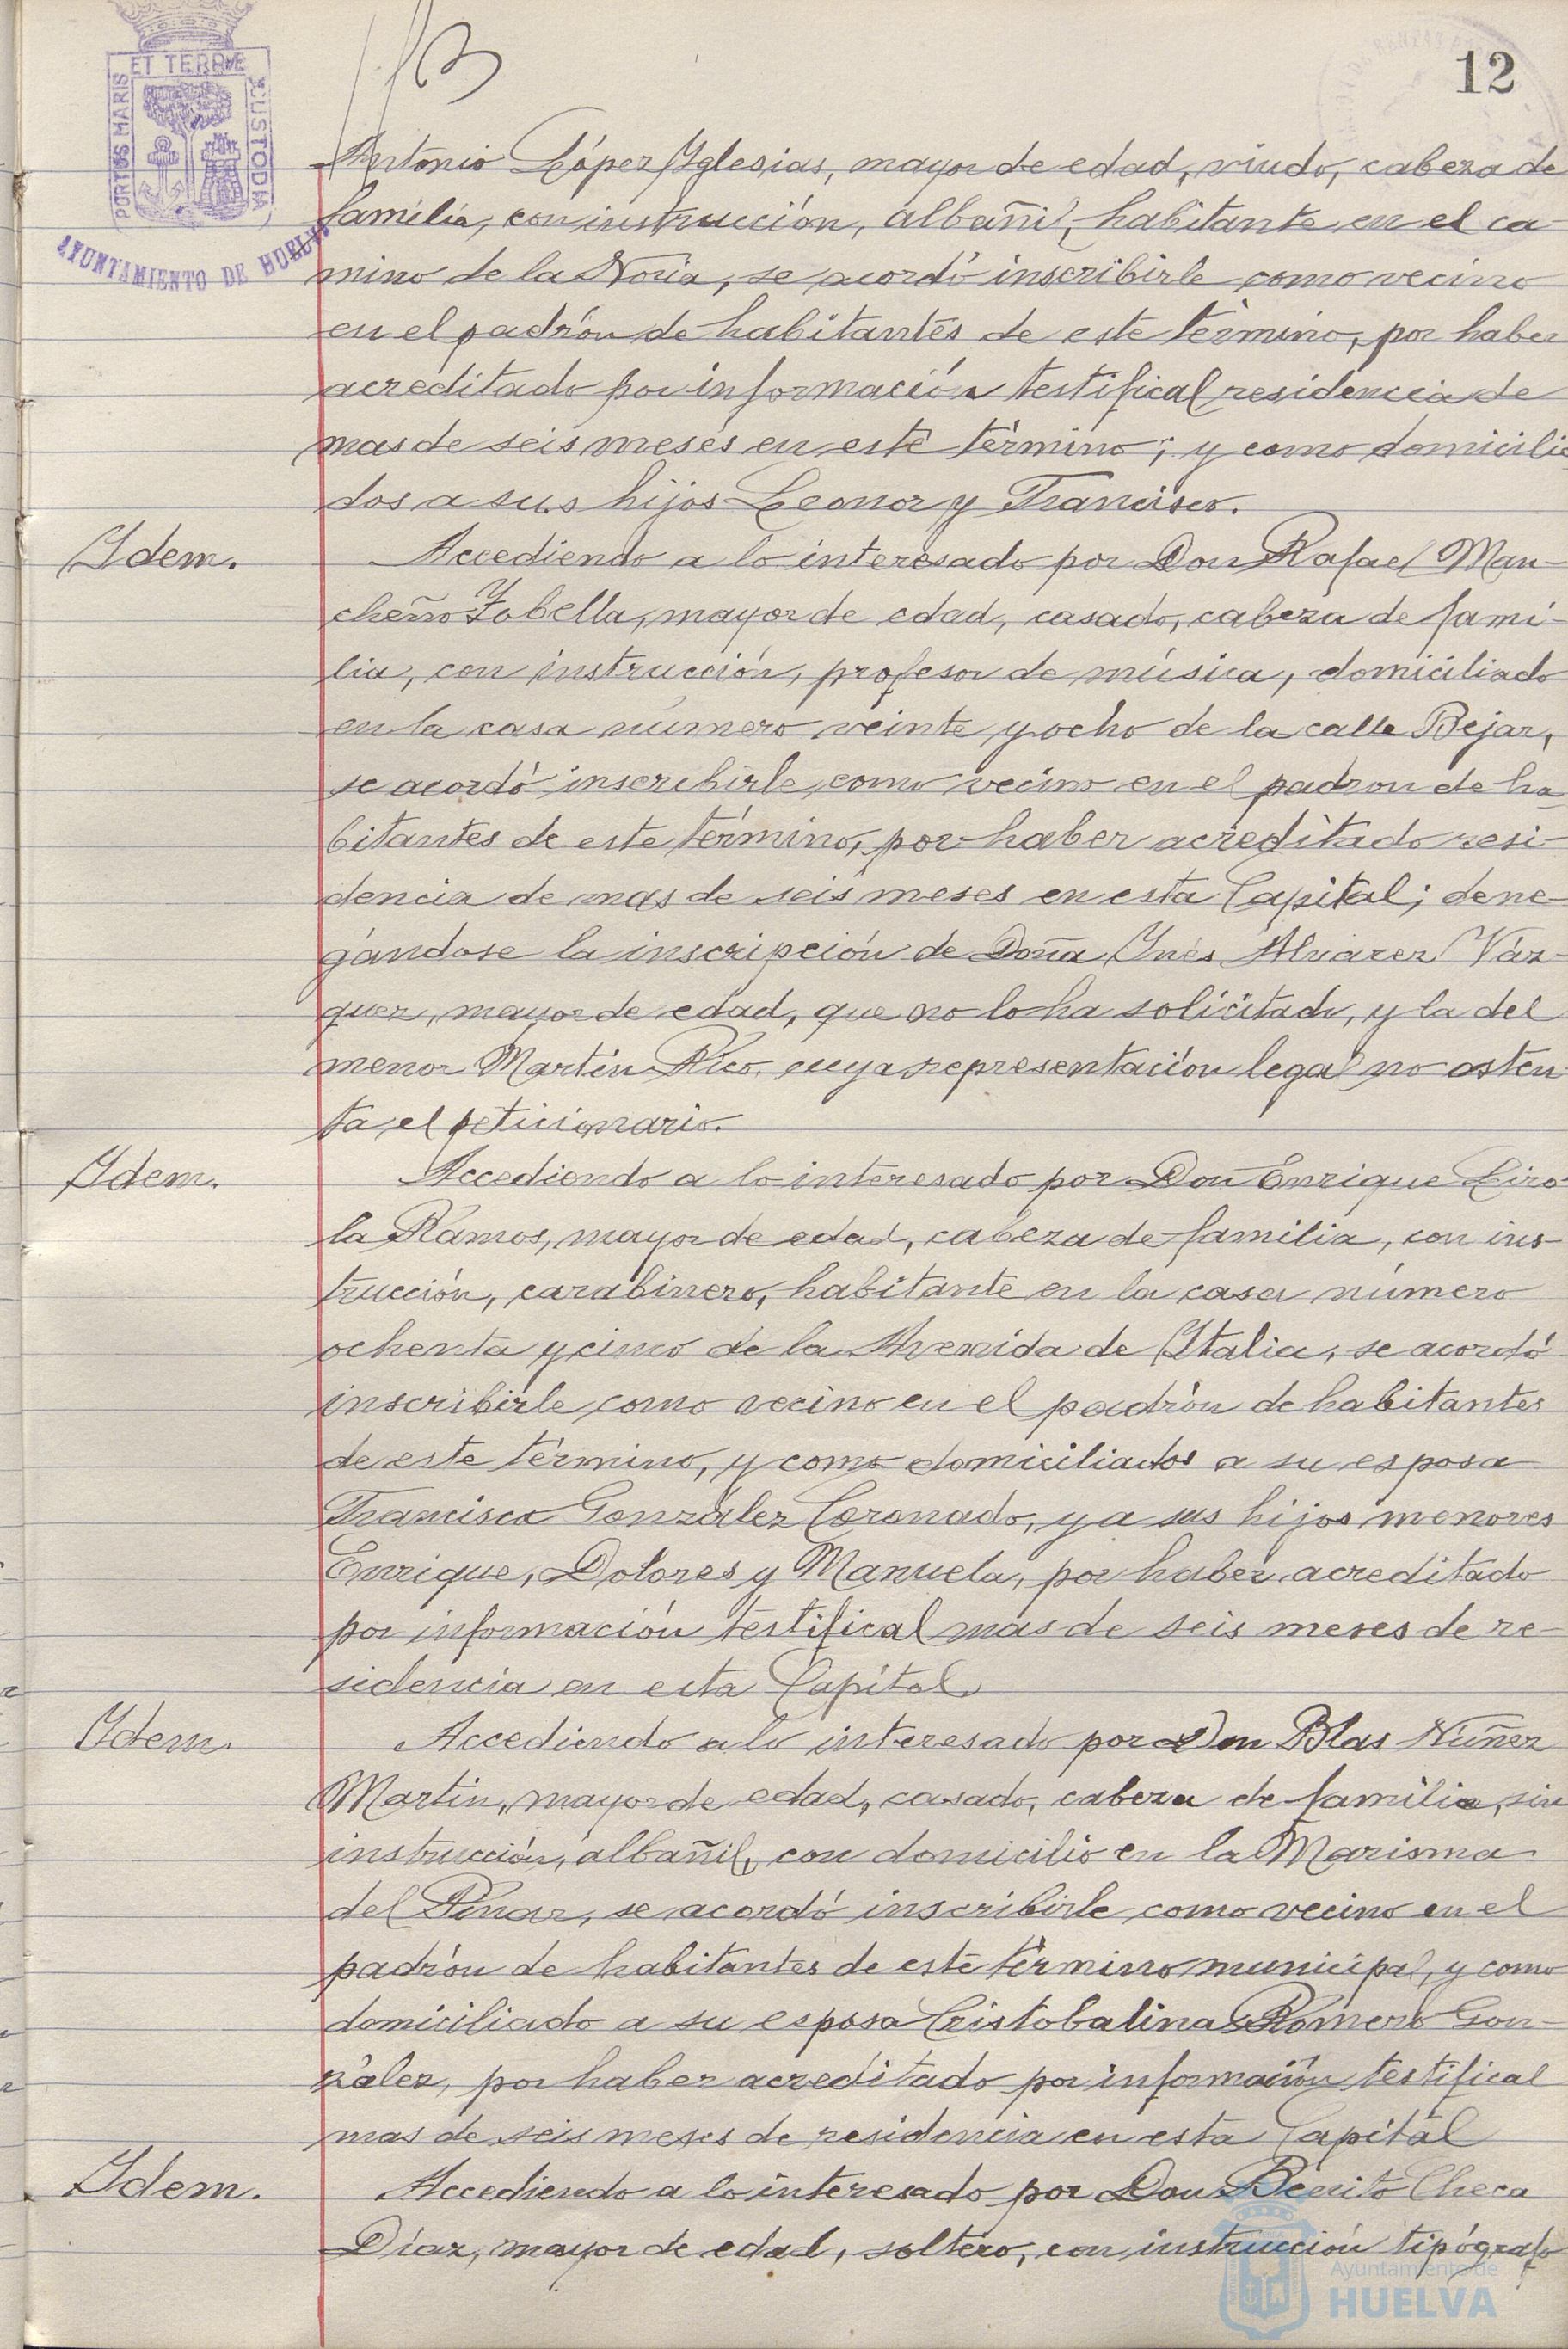 12
ET TERRÆ
PORTUS MARIS
CUSTODIA
AYUNTAMIENTO DE HUELVA
Antonio López Iglesias, mayor de edad, viudo, cabeza de
familia, con instrucción, albañil, habitante en el ca-
mino de la Noria, se acordó inscribirle como vecino
en el padrón de habitantes de este término, por haber
acreditado por información testifical residencia de
mas de seis meses en este término; y como domicilia
dos a sus hijos Leonor y Francisco.
Idem. Accediendo a lo interesado por Don Rafael Man-
cheño Yobella, mayor de edad, casado, cabeza de fami-
lia, con instrucción, profesor de música, domiciliado
en la casa número veinte y ocho de la calle Bejar,
se acordó inscribirle como vecino en el padron de ha
bitantes de este término, por haber acreditado resi-
dencia de mas de seis meses en esta Capital; dene-
gándose la inscripción de Doña Inés Alvarez Váz-
quez, mayor de edad, que no lo ha solicitado, y la del
menor Martín Rico, cuya representación legal no osten
ta el peticionario.
Idem. Accediendo a lo interesado por Don Enrique Liro
la Ramos, mayor de edad, cabeza de familia, con ins-
trucción, carabinero, habitante en la casa número
ochenta y cinco de la Avenida de Italia, se acordó
inscribirle como vecino en el padrón de habitantes
de este término, y como domiciliados a su esposa
Francisca González Coronado, y a sus hijos menores
Enrique, Dolores y Manuela, por haber acreditado
por información testifical mas de seis meses de re-
sidencia en esta Capital.
Idem. Accediendo a lo interesado por Don Blas Núñez
Martin, mayor de edad, casado, cabeza de familia, sin
instrucción, albañil, con domicilio en la Marisma
del Pinar, se acordó inscribirle como vecino en el
padrón de habitantes de este término municipal, y como
domiciliado a su esposa Cristobalina Romero Gon-
zález, por haber acreditado por información testifical
mas de seis meses de residencia en esta Capital
Idem. Accediendo a lo interesado por Don Benito Checa
Díaz, mayor de edad, soltero, con instrucción tipógrafo
Ayuntamiento de
HUELVA